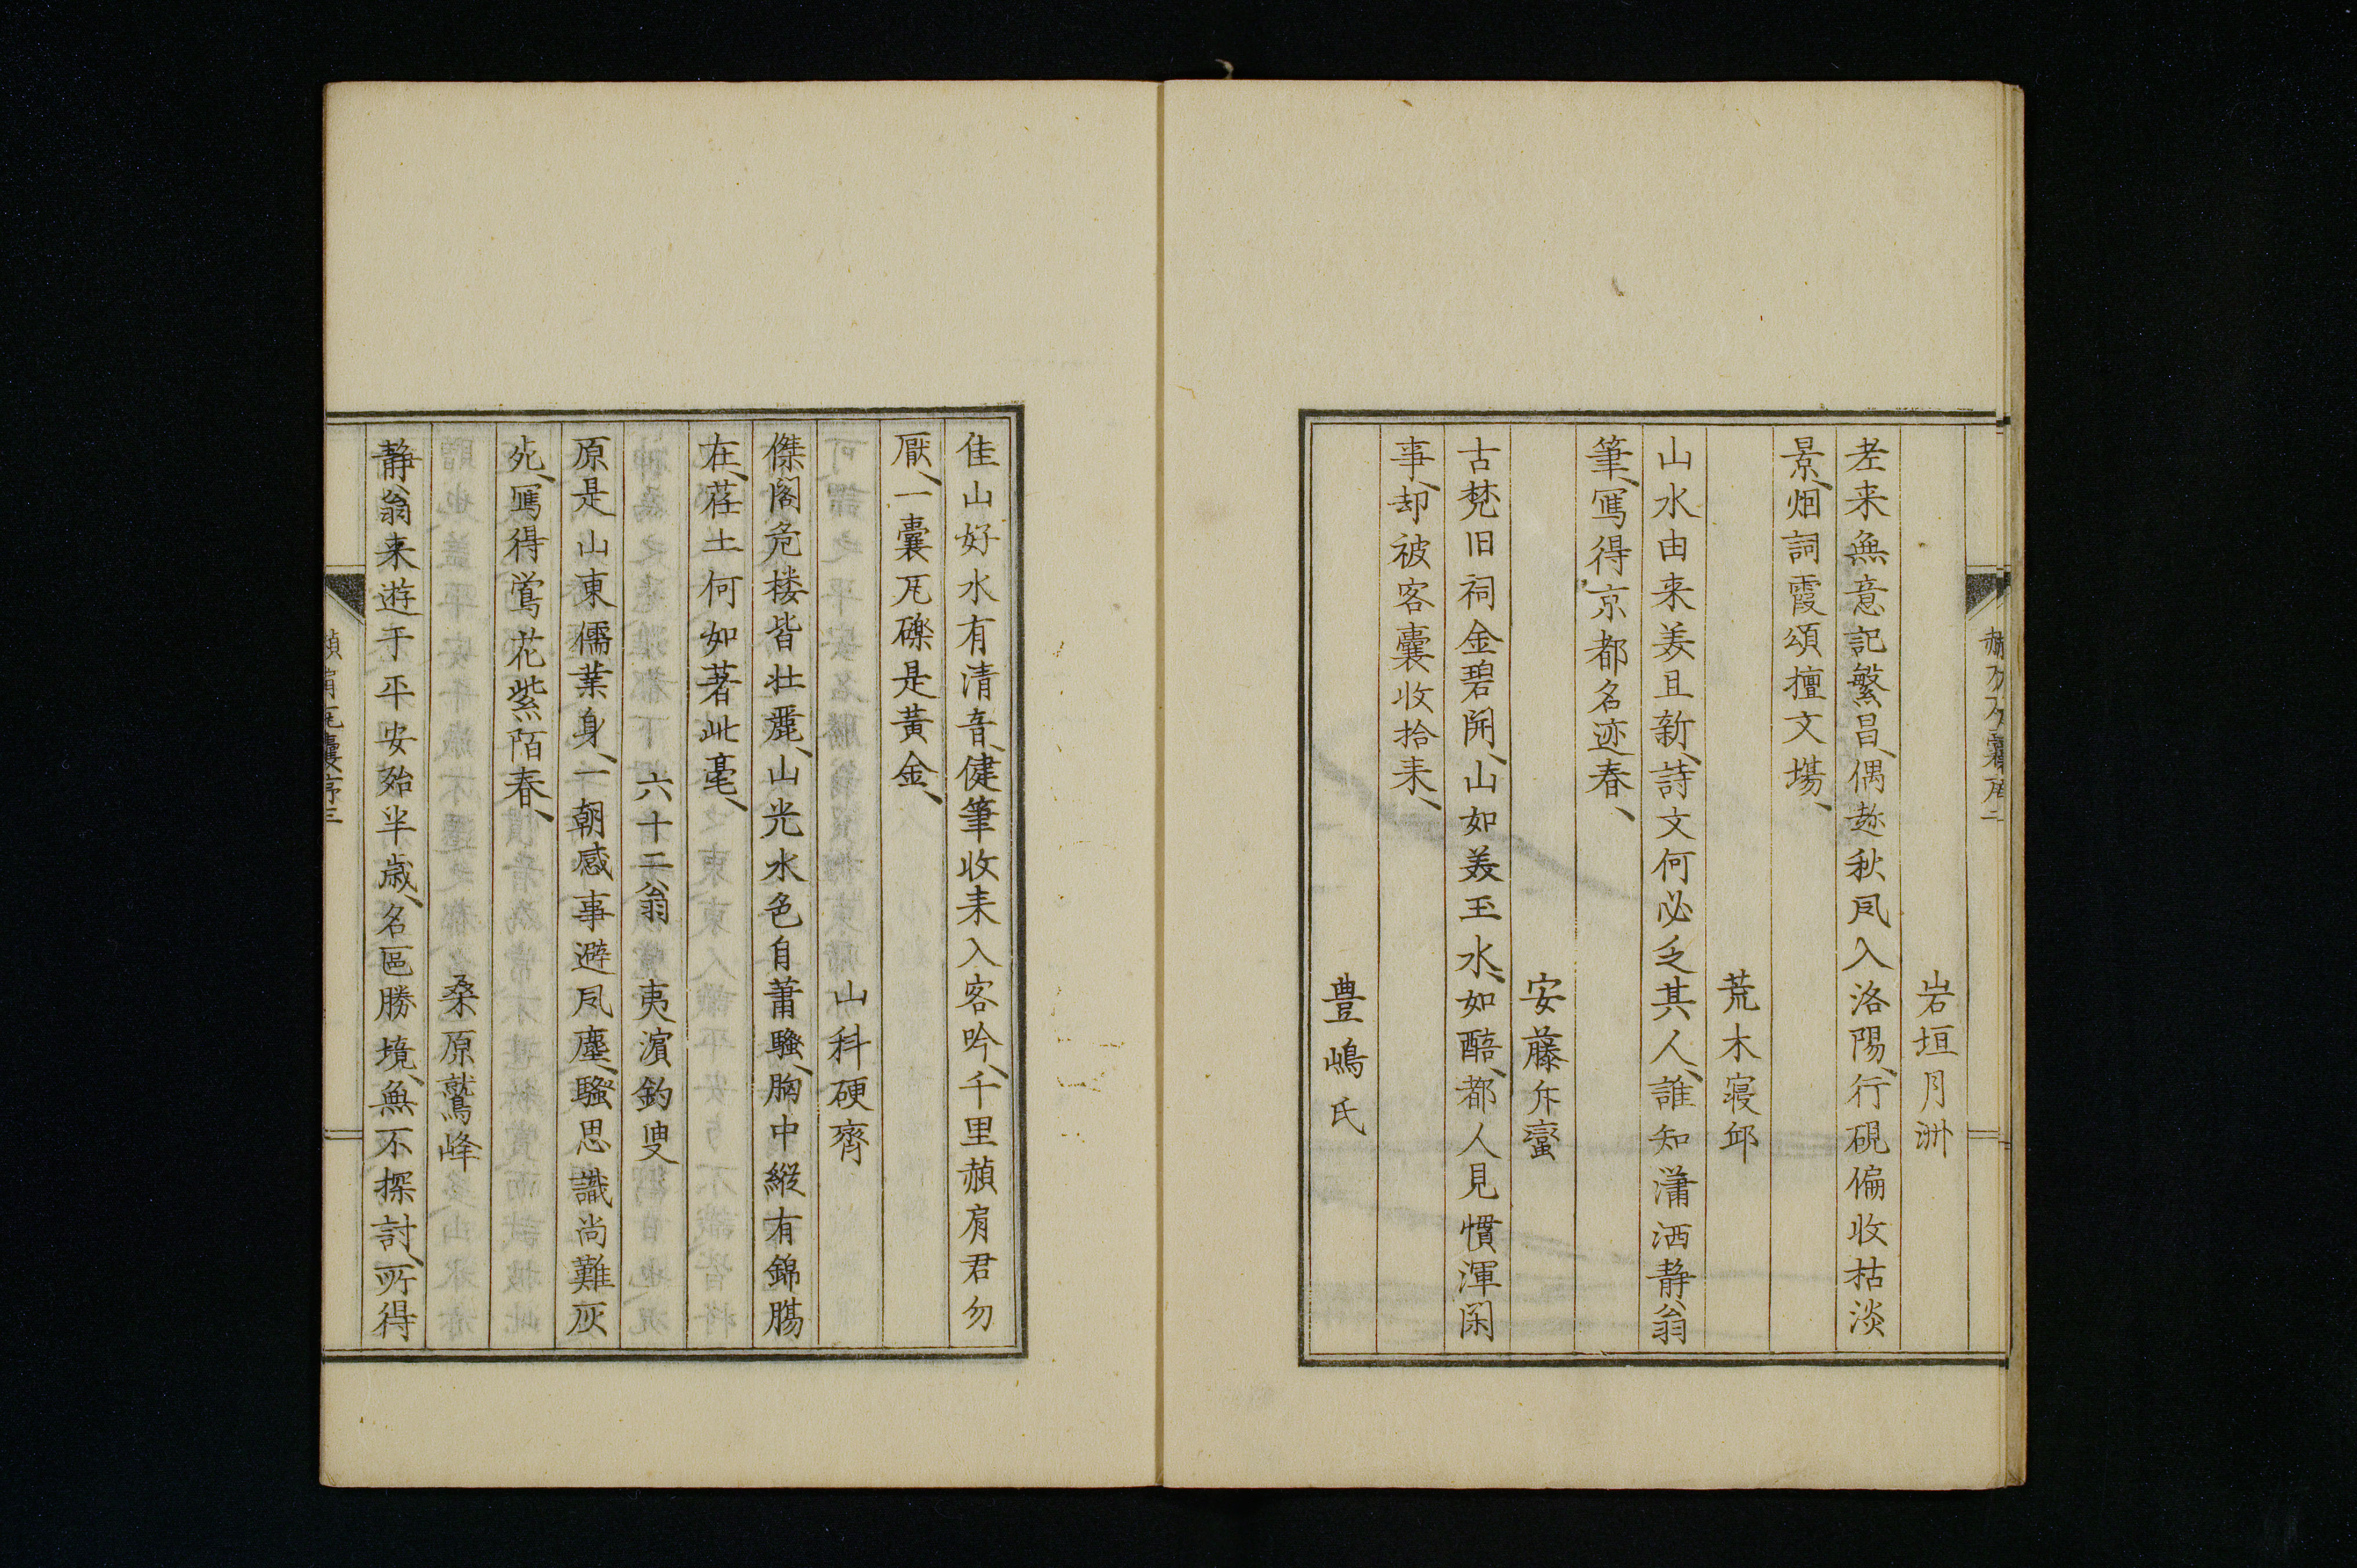 岩垣月洲
老来無意記繁昌、偶趂秋凨入洛陽、行硯偏收枯淡
景、烟詞霞頌擅文場、
荒木寝邱
山水由来美且新、詩文何必乏其人、誰知瀟洒静翁
筆、寫得京都名迹春、
安藤斥蠻
古梵旧祠金碧開、山如美玉水如醅、都人見慣渾閑
事、却被客囊收拾来、
豊嶋氏
佳山好水有清音、健筆收来入客吟、千里赬肩君勿
厭、一囊瓦礫是黄金、
山科硬齊
傑閣危楼皆壮麗、山光水色自蕭騷、胸中縦有錦腸
在、荏土何如著此毫、
六十二翁 夷濵釣叟
原是山東儒業身、一朝感事避凨塵、騷思識尚難灰
死、寫得鶯花紫陌春、
桑原鷲峰
静翁来遊于平安殆半歳、名區勝境、無不探討、所得
赬肩瓦囊序三